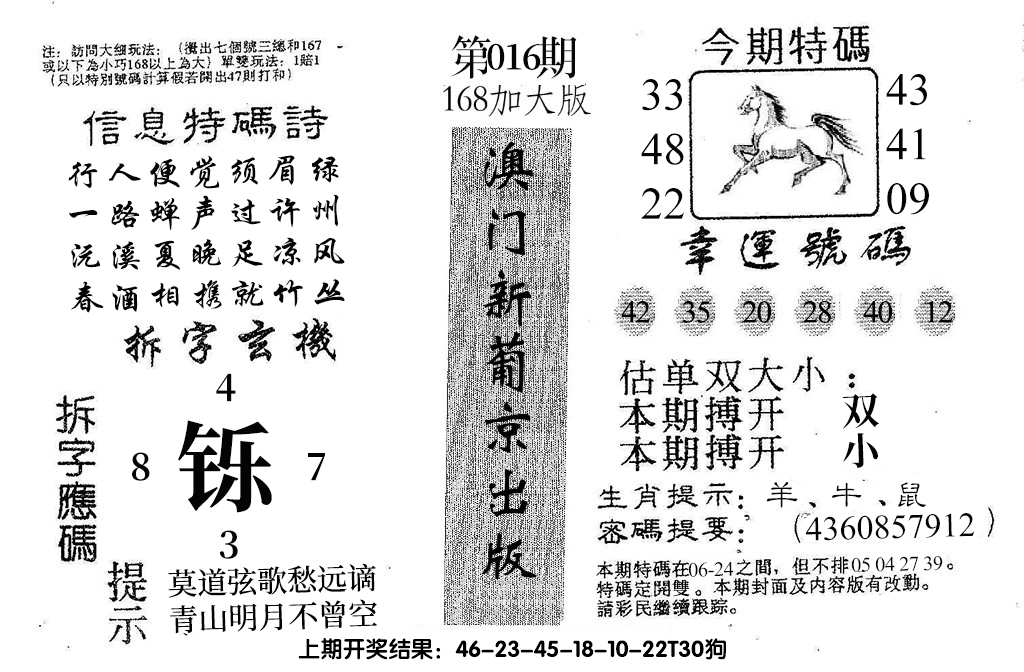 注：訪問大细玩法：（攪出七個號三總和167
或以下為小巧168以上為大）單雙玩法：1賠1
（只以特別號碼計算假若開出47則打和）
信息特碼詩
行人便觉须眉绿
一路蝉声过许州
沅溪夏晚足凉风
春酒相携就竹丛
拆字玄機
拆字應碼
4
8 铄 7
3
提示
莫道弦歌愁远谪
青山明月不曾空
第016期
168加大版
澳门新葡京出版
今期特碼
33 43
48 41
22 09
幸運號碼
42 35 20 28 40 12
估单双大小：
本期搏开 双
本期搏开 小
生肖提示：羊、牛、鼠
密碼提要：（4360857912）
本期特碼在06-24之間，但不排05 04 27 39。
特碼定開雙。本期封面及内容版有改動。
請彩民繼續跟踪。
上期开奖结果：46-23-45-18-10-22T30狗